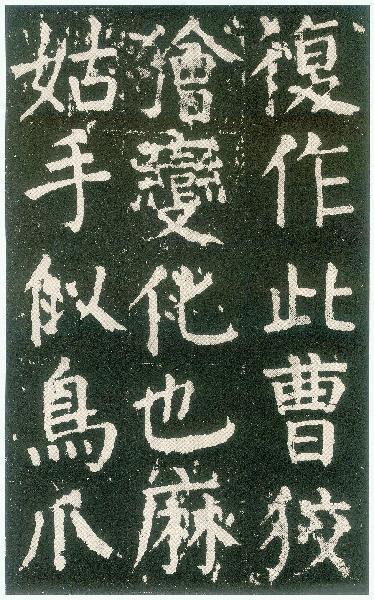 復作此曹狡
獪變化也麻
姑手似鳥爪